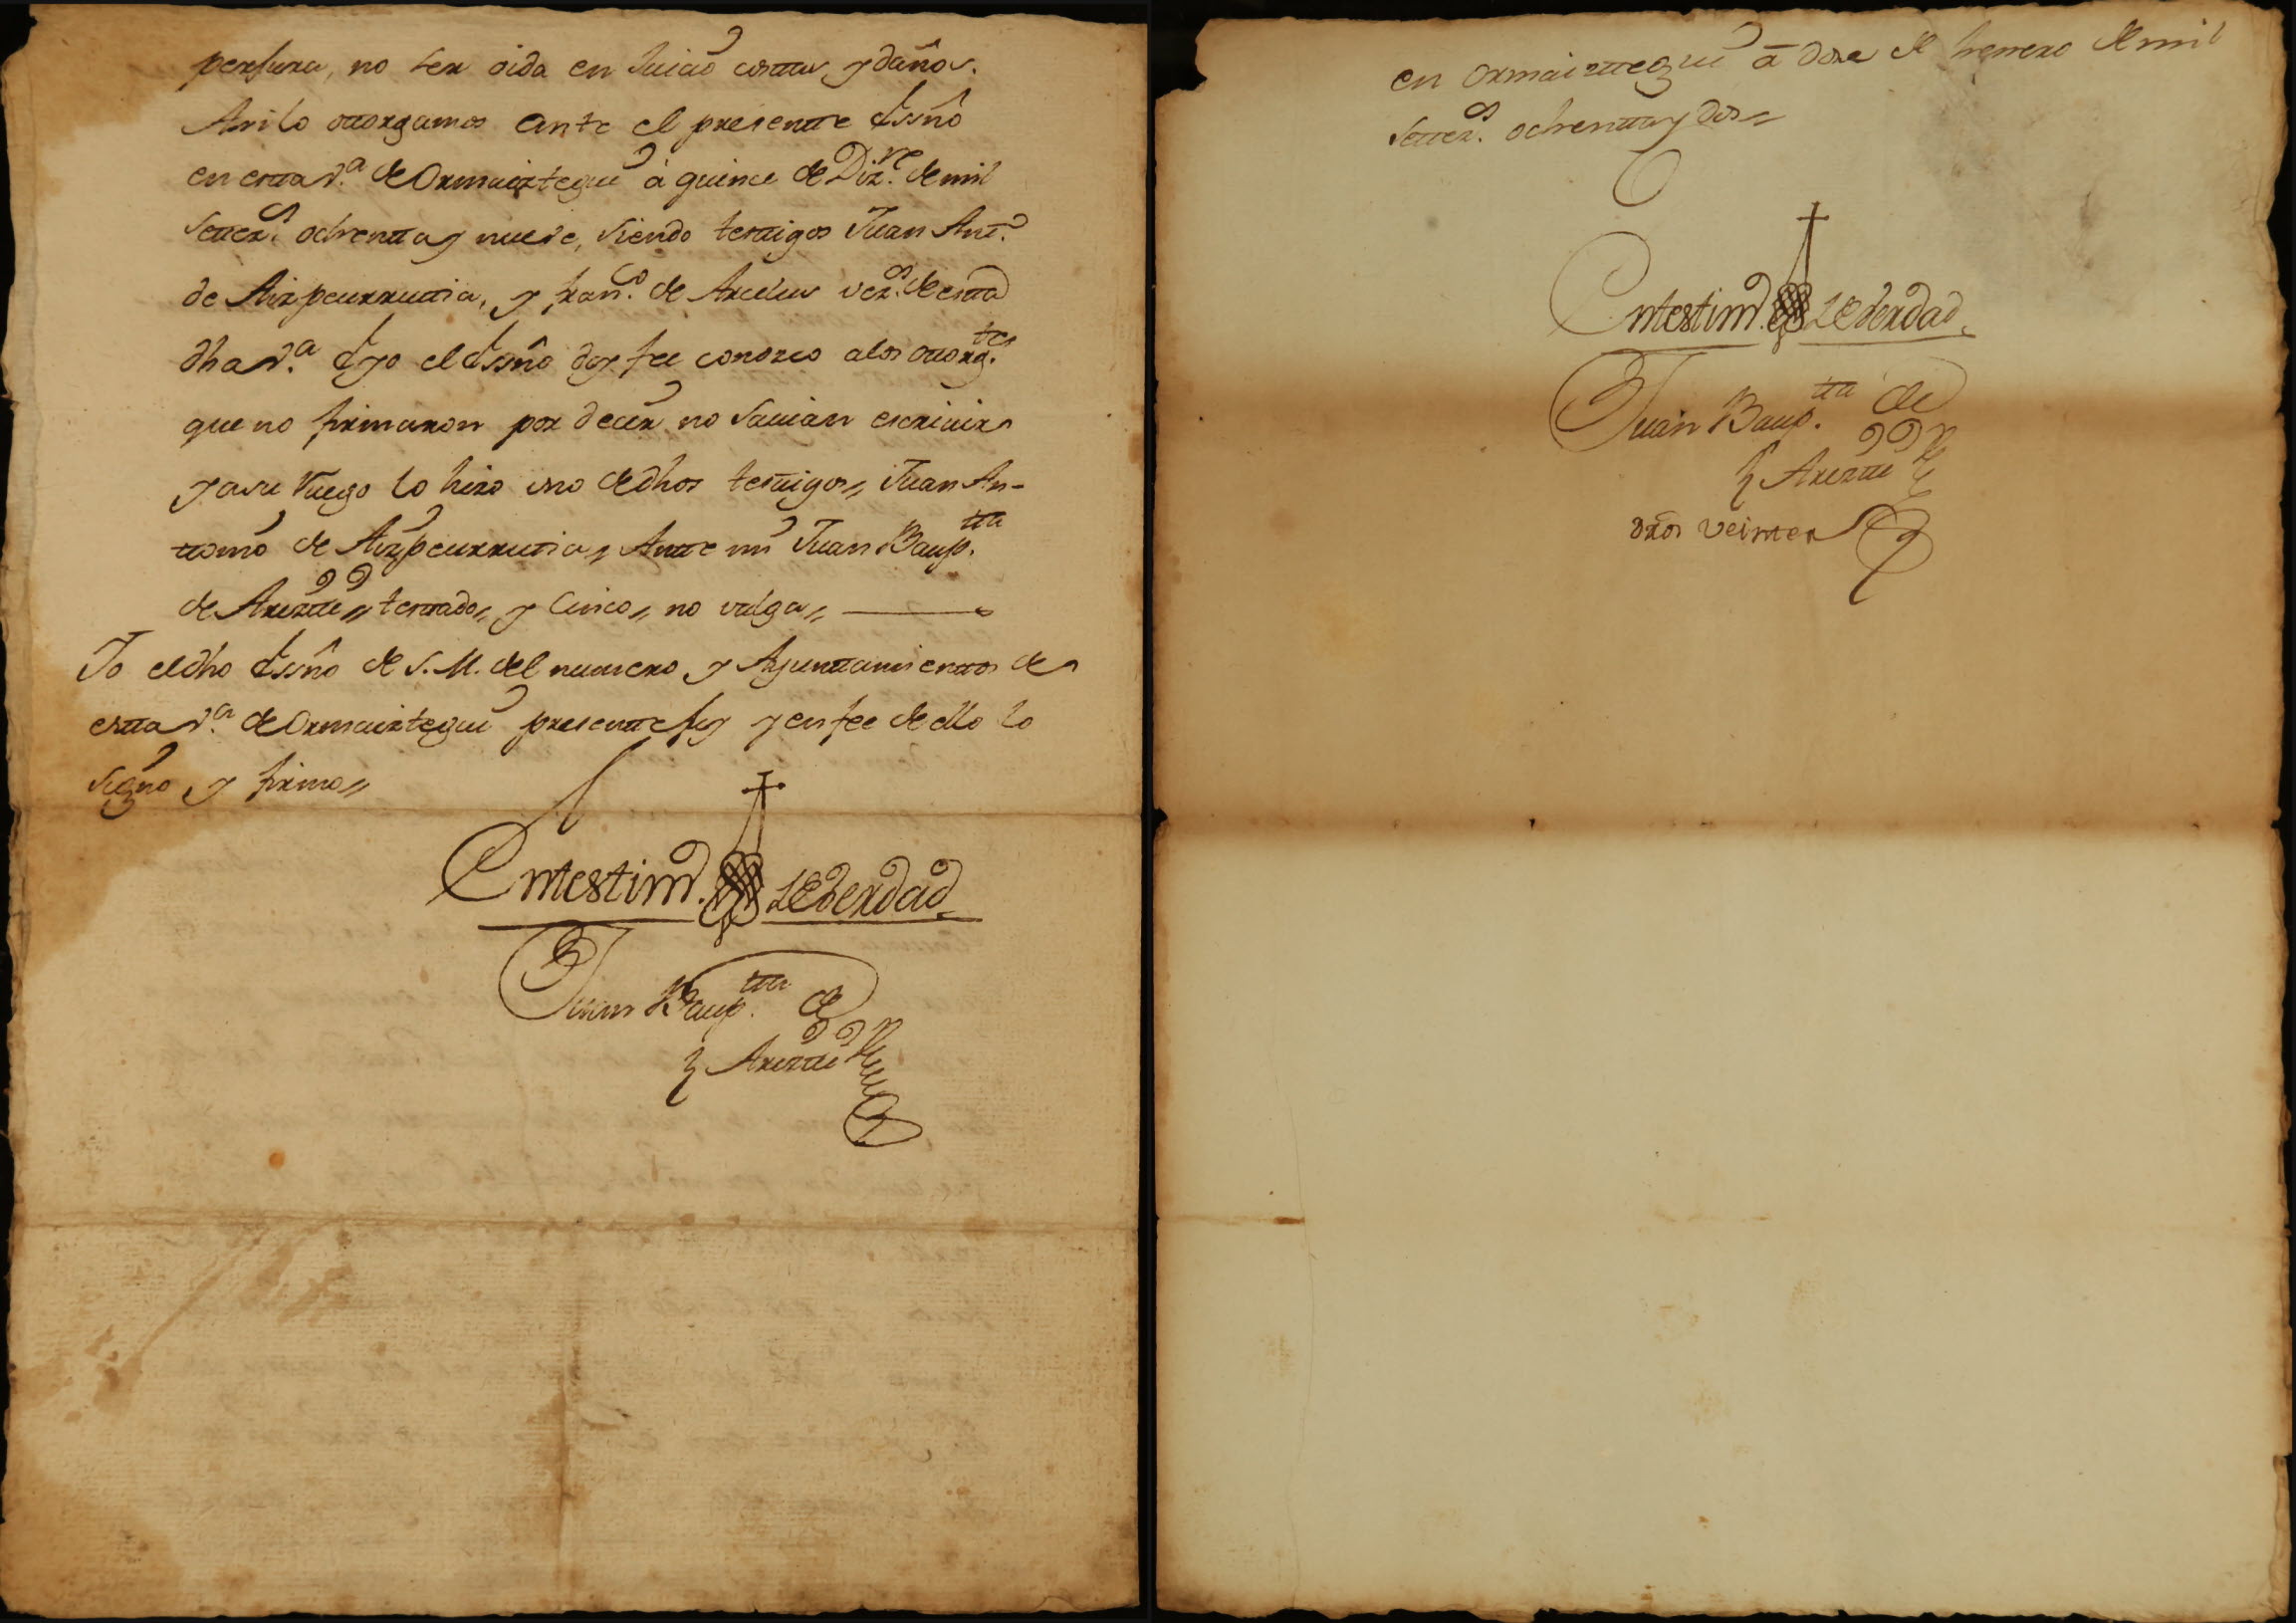 perjura, no ser oida en Juicio costtas, y daños.
Asi lo ottorgamos ante el presentte Essño
en estta v.ª de Ormaiztegui á quince de Diz.re de mil
settez.s ochentta y nueve, siendo testtigos Juan Antt.º
de Aizpeurruttia, y Fran.co de Arcelus vez.s de estta
dha v.ª E yo el Essño doy fee conozco a los ottorg.tes
que no firmaron por decir no savian escrivir
y a su Ruego lo hizo uno de dhos testtigos,, Juan An-
ttonio de Aizpeurruttia,, Antte mi Juan Baup.tta
de Arizttii,, testtado,, y Cinco,, no valga,,
Yo el dho Essño de S. M. del numero y Ayunttamientto de
estta v.ª de Ormaiztegui presentte fuy y en fee de ello lo
signo y firmo,,
En testim.º de verdad
Juan Baup.tta de
Arizttii
en Ormaizttegui á doze de henero de mil
settez.s ochentta y dos,,
En testim.º de verdad
Juan Baup.tta de
Arizttii
dros veintte r.s